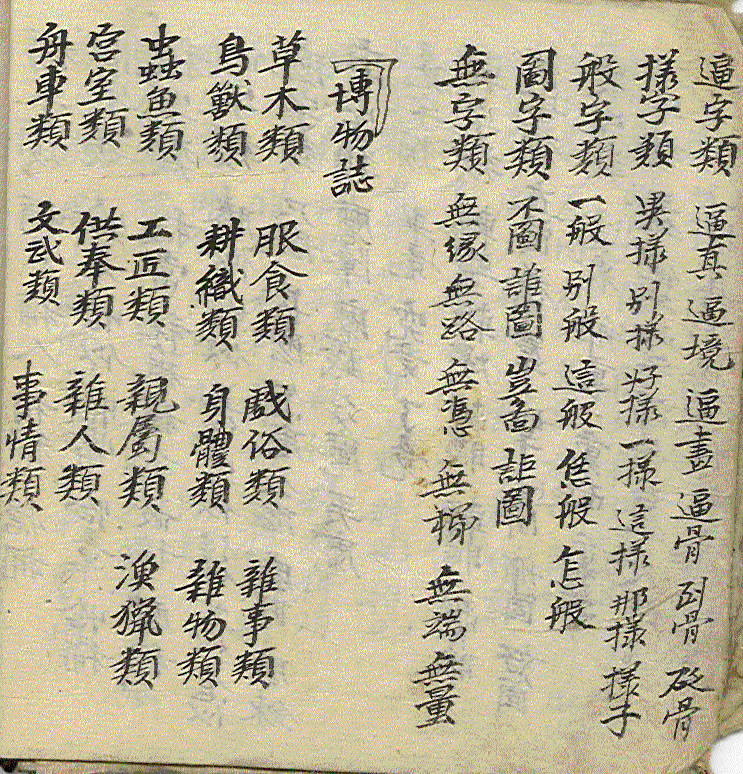 逼字類 逼真 逼境 逼 逼骨 到骨 砭骨
樣字類 異樣 別樣 好樣 一樣 這樣 那樣 樣子
般字類 一般 別般 這般 恁般 怎般
圖字類 不圖 誰圖 豈啚 詎圖
無字類 無緣 無路 無憑 無梯 無端 無量
博物誌
草木類 服食類 戲俗類 雜事類
鳥獸類 耕織類 身體類 雜物類
蟲魚類 工匠類 親屬類 漁獵類
宮室類 供奉類 雜人類
舟車類 文武類 事情類